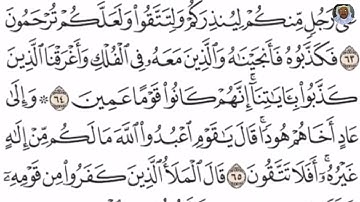 عَلَىٰ رَجُلٍ مِّنكُمْ لِيُنذِرَكُمْ وَلِتَتَّقُوا۟ وَلَعَلَّكُمْ تُرْحَمُونَ
٦٣ فَكَذَّبُوهُ فَأَنجَيْنَـٰهُ وَٱلَّذِينَ مَعَهُۥ فِى ٱلْفُلْكِ وَأَغْرَقْنَا ٱلَّذِينَ
كَذَّبُوا۟ بِـَٔايَـٰتِنَآ ۚ إِنَّهُمْ كَانُوا۟ قَوْمًا عَمِينَ ٦٤ ۞ وَإِلَىٰ
عَادٍ أَخَاهُمْ هُودًا ۗ قَالَ يَـٰقَوْمِ ٱعْبُدُوا۟ ٱللَّهَ مَا لَكُم مِّنْ إِلَـٰهٍ
غَيْرُهُۥٓ ۚ أَفَلَا تَتَّقُونَ ٦٥ قَالَ ٱلْمَلَأُ ٱلَّذِينَ كَفَرُوا۟ مِن قَوْمِهِۦٓ